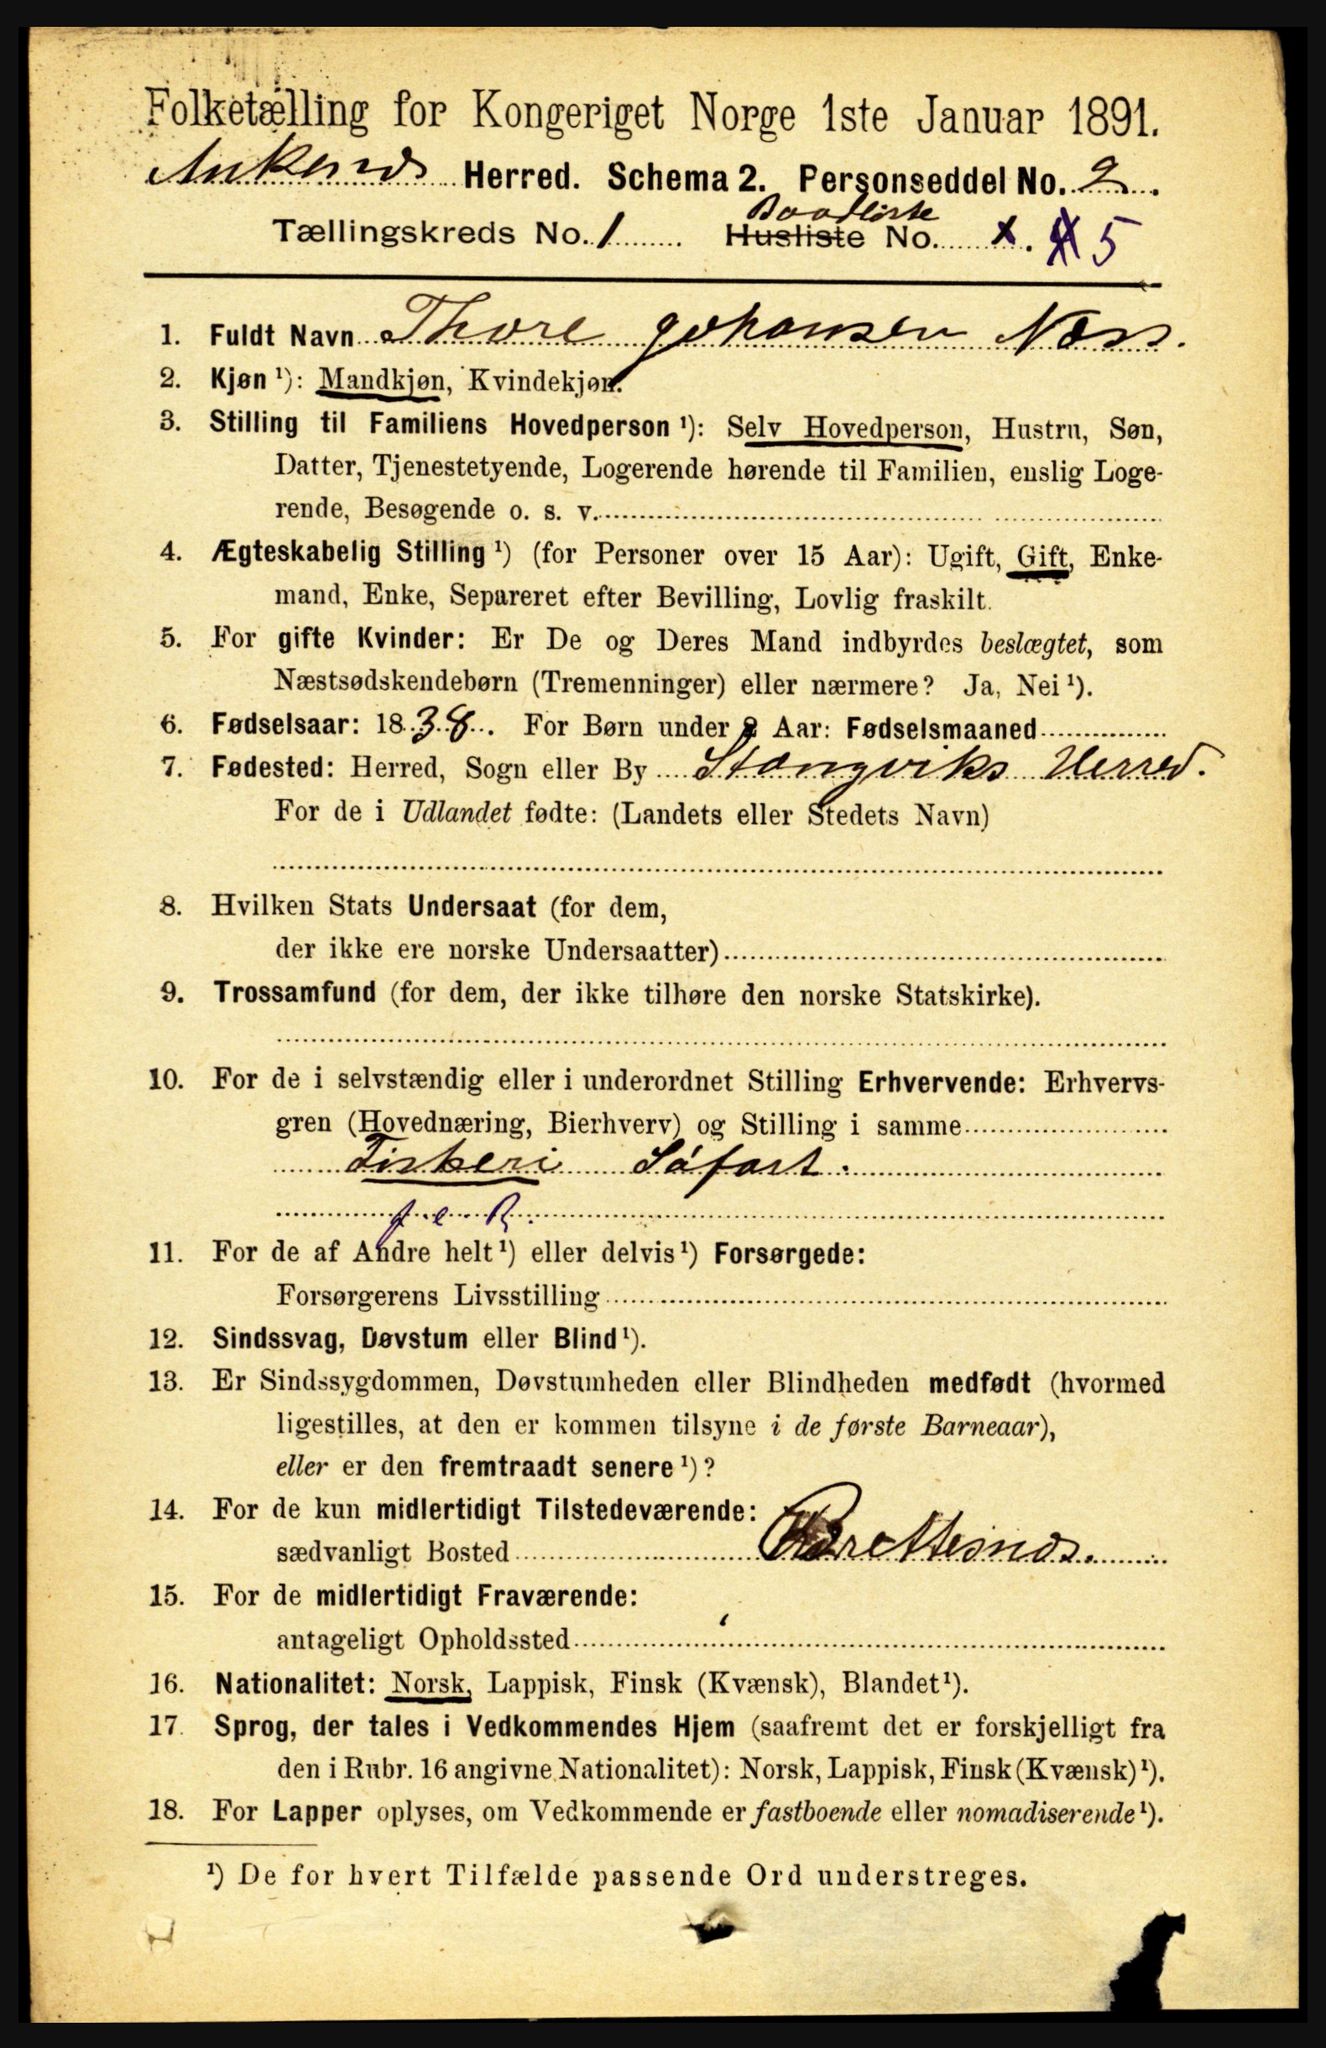 Folketælling for Kongeriget Norge 1ste Januar 1891.
Ankenes Herred. Schema 2. Personseddel No. 2.
Baadliste
Tællingskreds No. 1 Husliste No. 5
1. Fuldt Navn Thore Johansen Næss.
2. Kjøn ¹): Mandkjøn, Kvindekjøn.
3. Stilling til Familiens Hovedperson ¹): Selv Hovedperson, Hustru, Søn,
Datter, Tjenestetyende, Logerende hørende til Familien, enslig Loge-
rende, Besøgende o. s. v.
4. Ægteskabelig Stilling ¹) (for Personer over 15 Aar): Ugift, Gift, Enke-
mand, Enke, Separeret efter Bevilling, Lovlig fraskilt.
5. For gifte Kvinder: Er De og Deres Mand indbyrdes beslægtet, som
Næstsødskendebørn (Tremenninger) eller nærmere? Ja, Nei ¹).
6. Fødselsaar: 1838. For Børn under 2 Aar: Fødselsmaaned
7. Fødested: Herred, Sogn eller By Stangviks Herred.
For de i Udlandet fødte: (Landets eller Stedets Navn)
8. Hvilken Stats Undersaat (for dem,
der ikke ere norske Undersaatter)
9. Trossamfund (for dem, der ikke tilhøre den norske Statskirke).
10. For de i selvstændig eller i underordnet Stilling Erhvervende: Erhvervs-
gren (Hovednæring, Bierhverv) og Stilling i samme
Fiskeri Søfart.
11. For de af Andre helt ¹) eller delvis ¹) Forsørgede:
Forsørgerens Livsstilling
12. Sindssvag, Døvstum eller Blind ¹).
13. Er Sindssygdommen, Døvstumheden eller Blindheden medfødt (hvormed
ligestilles, at den er kommen tilsyne i de første Barneaar),
eller er den fremtraadt senere ¹)?
14. For de kun midlertidigt Tilstedeværende:
sædvanligt Bosted Brettesnæs.
15. For de midlertidigt Fraværende:
antageligt Opholdssted
16. Nationalitet: Norsk, Lappisk, Finsk (Kvænsk), Blandet ¹).
17. Sprog, der tales i Vedkommendes Hjem (saafremt det er forskjelligt fra
den i Rubr. 16 angivne Nationalitet): Norsk, Lappisk, Finsk (Kvænsk) ¹).
18. For Lapper oplyses, om Vedkommende er fastboende eller nomadiserende ¹).
¹) De for hvert Tilfælde passende Ord understreges.